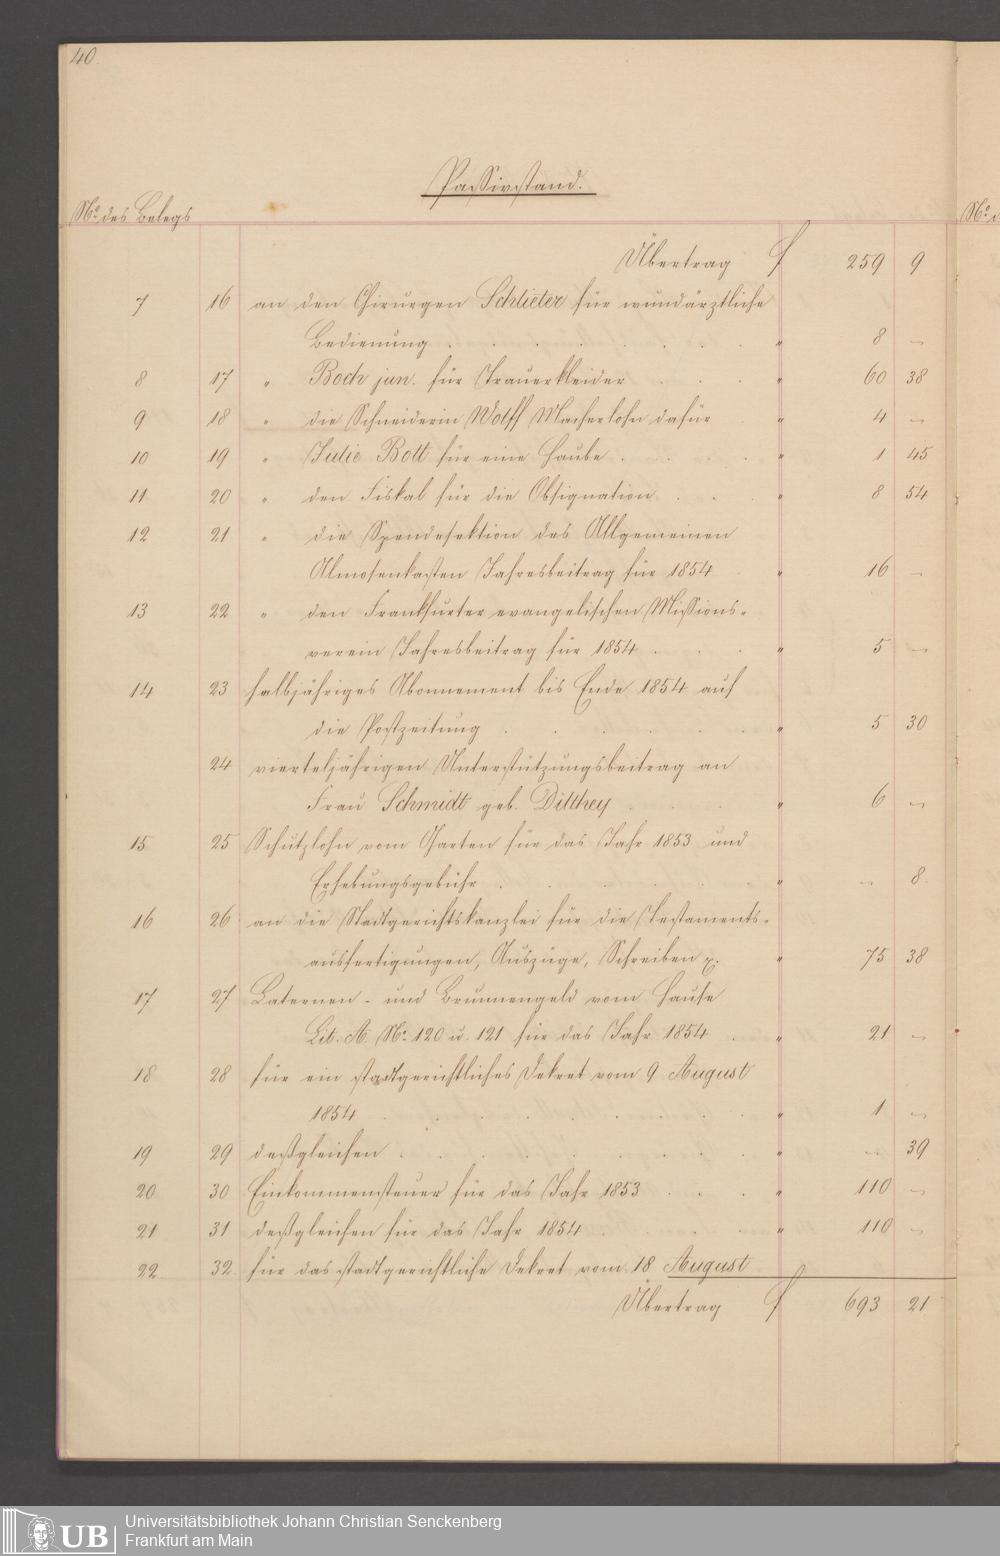 40.
Passivstand.
No. des Belegs
Übertrag f 259 9
7 16 an den Chirurgen Schlieter für wundärztliche
Bedienung . . . . . . . . " 8 –
8 17 " Boch jun. für Trauerkleider . . . " 60 38
9 18 " die Schneiderin Wolff Macherlohn dafür . " 4 –
10 19 " Julie Bott für eine Haube . . . . " 1 45
11 20 " den Fiskal für die Obsignation . . . " 8 54
12 21 " die Spendesektion des Allgemeinen
Almosenkasten Jahresbeitrag für 1854 . " 16 –
13 22 " den Frankfurter evangelischen Missions-
verein Jahresbeitrag für 1854 . . . " 5 –
14 23 halbjähriges Abonnement bis Ende 1854 auf
die Postzeitung . . . . . . " 5 30
24 vierteljährigen Unterstützungsbeitrag an
Frau Schmidt geb. Dilthey . . . " 6 –
15 25 Schützlohn vom Garten für das Jahr 1853 und
Erhebungsgebühr . . . . . . " – 8.
16 26 an die Stadtgerichtskanzlei für die Testaments-
ausfertigungen, Auszüge, Schreiben x. " 75 38
17 27 Laternen- und Brunnengeld vom Hause
Lit. A. No. 120 u. 121 für das Jahr 1854 . " 21 –
18 28 für ein stadtgerichtliches Dekret vom 9 August
1854 . . . . . . . . " 1 –
19 29 deßgleichen . . . . . . . . " – 39
20 30 Einkommensteuer für das Jahr 1853 . . . " 110 –
21 31 deßgleichen für das Jahr 1854 . . . . " 110 –
22 32 für das stadtgerichtliche Dekret vom 18 August
Übertrag f 693 21
No. d
UB Universitätsbibliothek Johann Christian Senckenberg
Frankfurt am Main